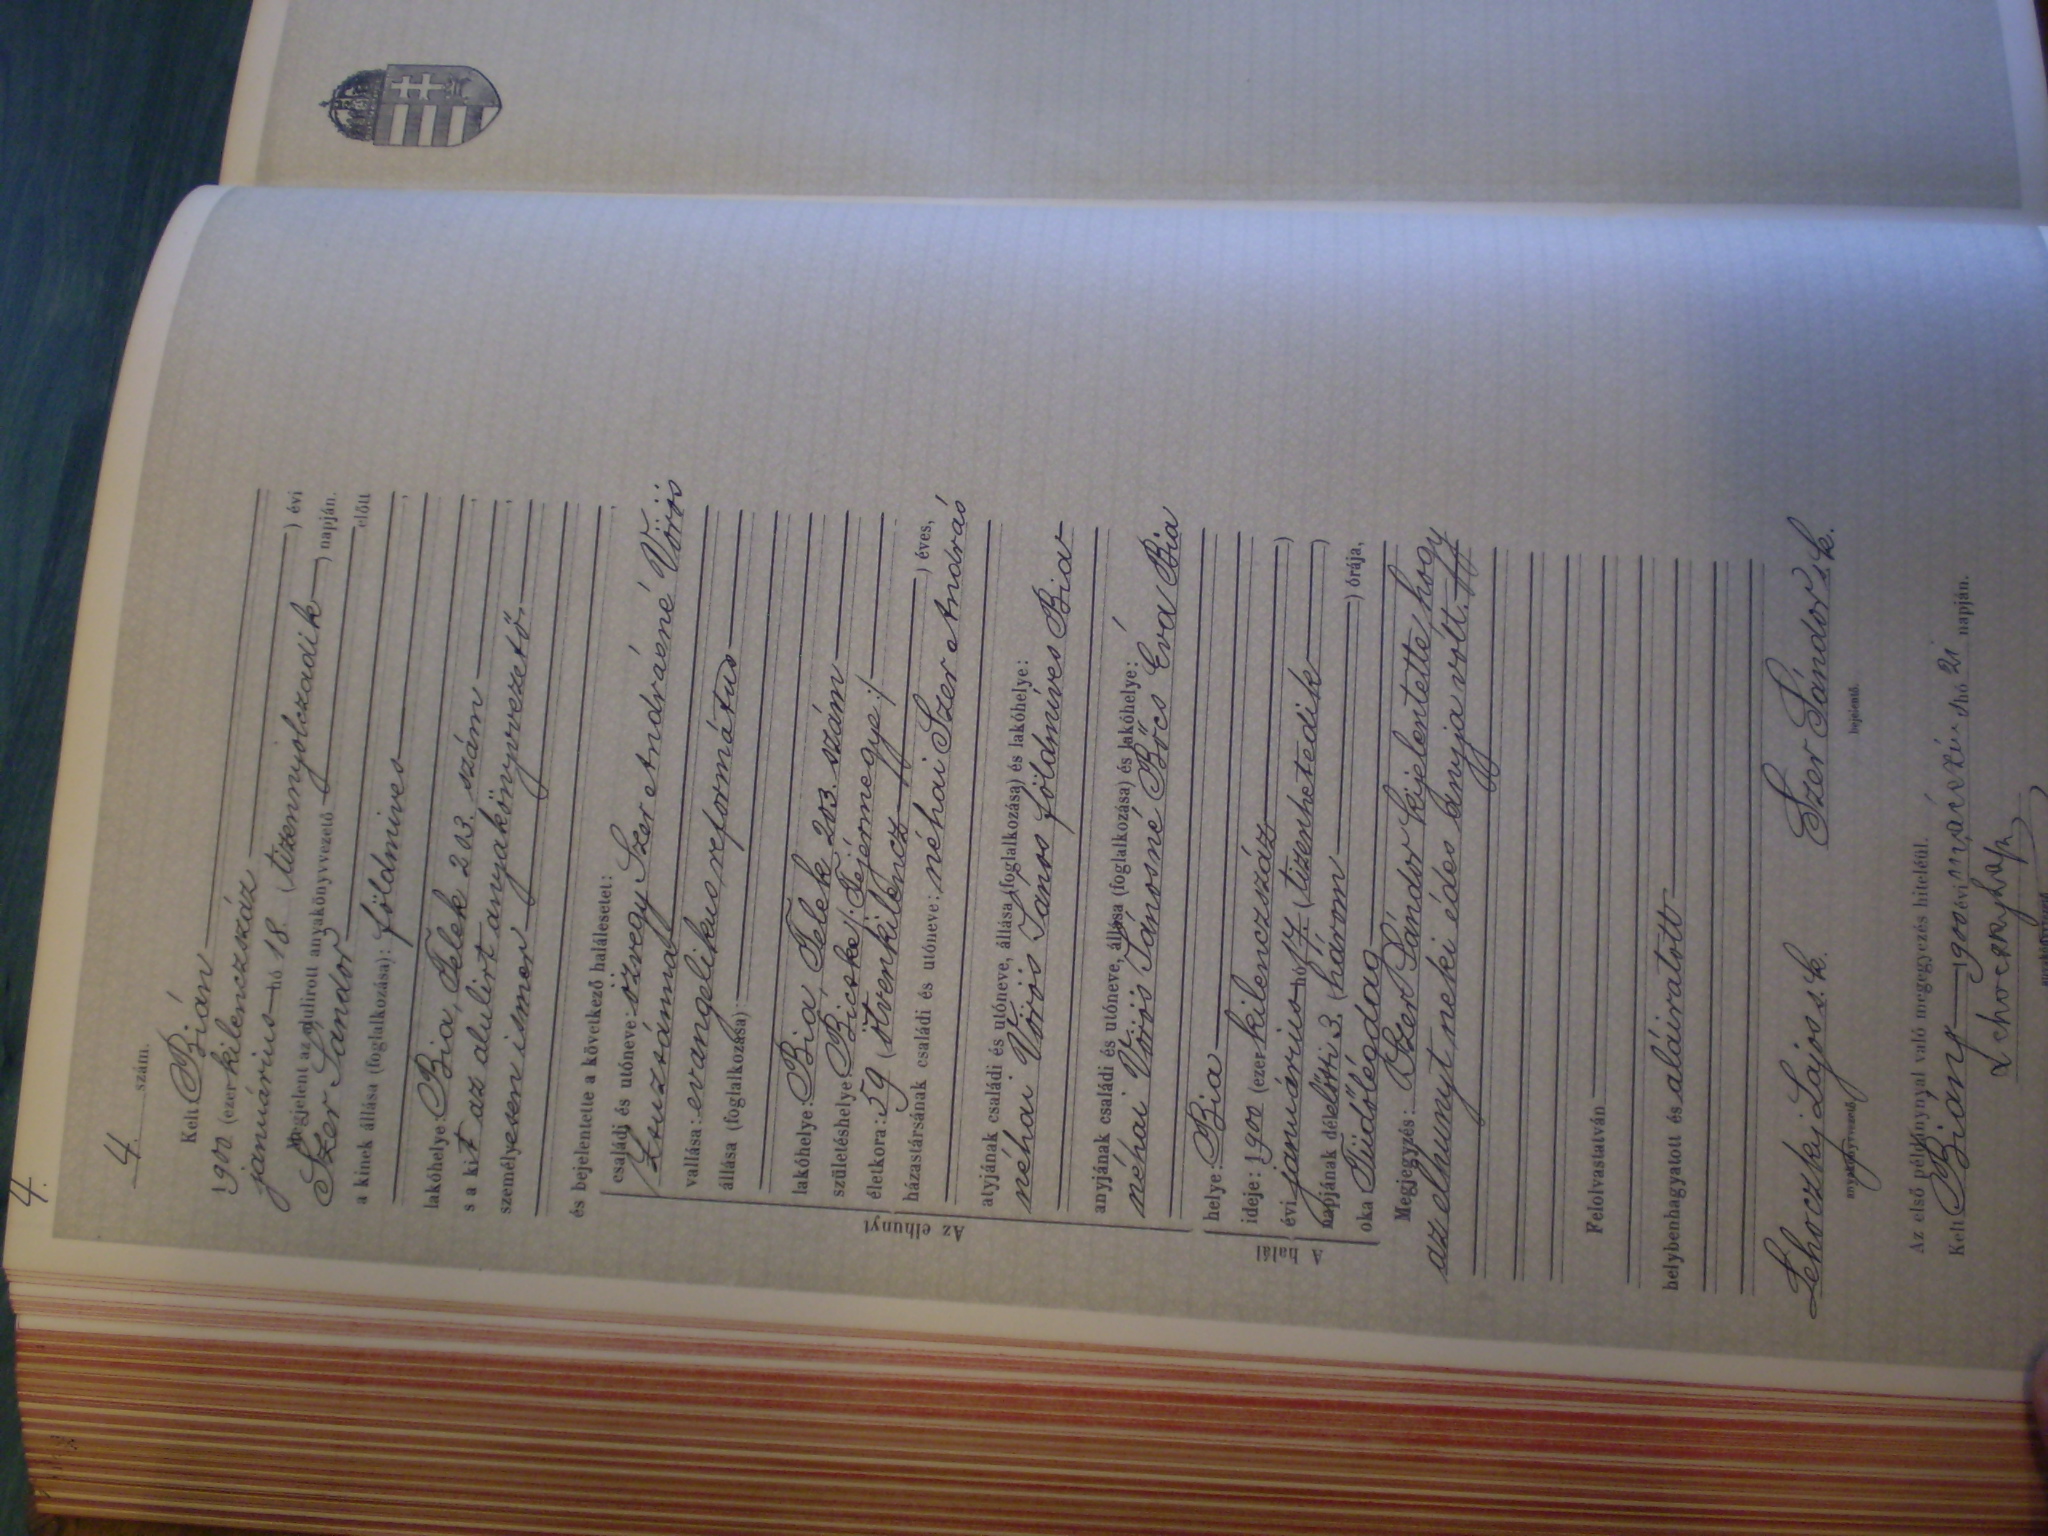 4.
4. szám.
Kelt Bián
1900 (ezer kilenczszáz ) évi
januárius hó 18. (tizennyolczadik ) napján.
Megjelent az alulirott anyakönyvvezető előtt
Szer Sándor
a kinek állása (foglalkozása): földmives ,
lakóhelye: Bia, Telek 203. szám ,
s a kit az alulirt anyakönyvvezető
személyesen ismer
és bejelentette a következő halálesetet:
Az elhunyt
családi és utóneve: özvegy Szer Andrásné Vörös
Zsuzsánna
vallása: evangelikus református
állása (foglalkozása):
lakóhelye: Bia, Telek 203. szám
születéshelye Bicske /: Fejérmegye :/
életkora: 59 (ötvenkilencz ) éves,
házastársának családi és utóneve: néhai Szer András
atyjának családi és utóneve, állása (foglalkozása) és lakóhelye:
néhai Vörös János földmíves Bia
anyjának családi és utóneve, állása (foglalkozása) és lakóhelye:
néhai Vörös Jánosné Bőcs Éva Bia
A halál
helye: Bia
ideje: 1900 (ezer kilenczszáz )
évi januárius hó 17. (tizenhetedik )
napjának délelőtti 3. (három ) órája,
oka Tüdőlégdag
Megjegyzés: Szer Sándor kijelentette hogy
az elhunyt neki édes anyja volt.
Felolvastatván
helybenhagyatott és aláiratott
Lehoczky Lajos s.k. Szer Sándor s.k.
anyakönyvvezető bejelentő.
Az első példánynyal való megegyezés hiteléül.
Kelt Bián 1900 évi hó 21 napján.